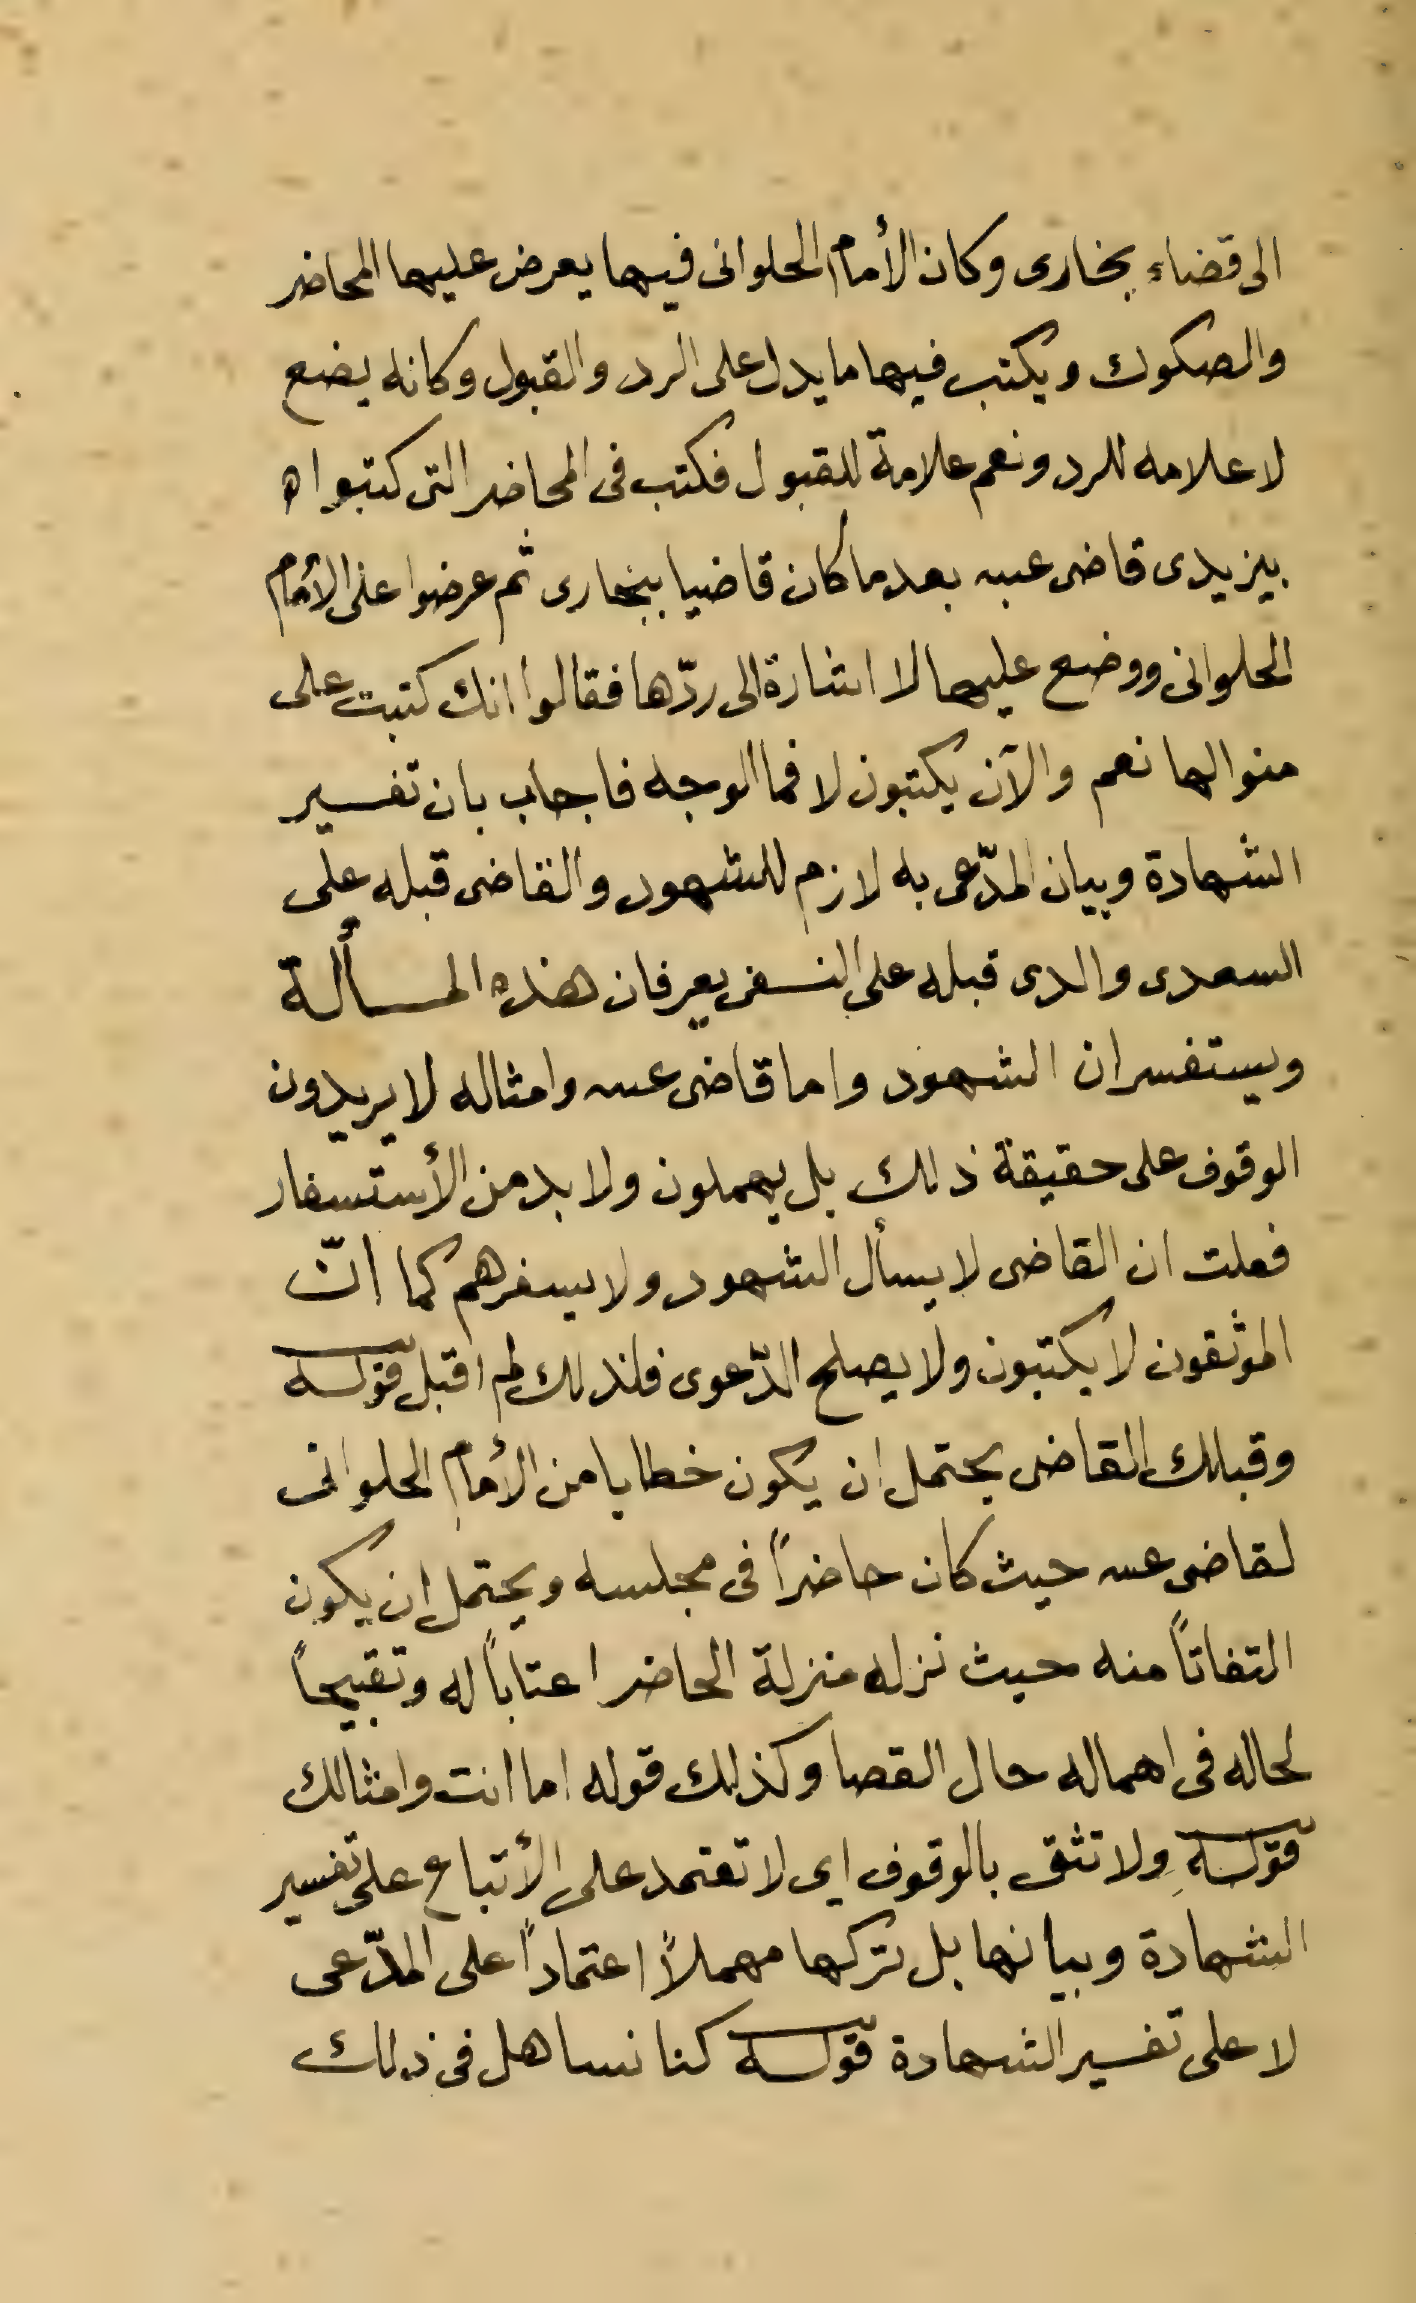 الى قضاء بخارى وكان الأمام الحلوانى فيها يعرض عليها المحاضر
والصكوك ويكتب فيها ما يدل على الرد والقبول وكانه يضع
لا علامه للرد ونعم علامة للقبول فكتب فى المحاضر التى كتبوا ه
بيزيدى قاضى بعدما كان قاضيا ببخارى ثم عرضوا على الأمام
الحلوانى ووضع عليها لا اشارة الى ردّها فقالوا انك كتبت على
منوالها نعم والآن يكتبون لا فما الوجه فاجاب بان تفسير
الشهادة وبيان المدّعى به لازم للشهود والقاضى قبله على
السعدى والدى قبله على النسفى يعرفان هذه المسألة
ويستفسران الشهود واما قاضى وامثاله لا يريدون
الوقوف على حقيقة ذلك بل يهملون ولا بد من الأستسفار
فعلت ان القاضى لا يسأل الشهود ولا يسفرهم كما انّ
الموثقون لا يكتبون ولا يصلح الدّعوى فلذلك لم اقبل قوله
وقبالك القاضى يحتمل ان يكون خطابا من الأمام الحلوانى
لقاضى حيث كان حاضراً فى مجلسه ويحتمل ان يكون
التفاتاً منه حيث نزله منزلة الحاضر اعتاباً له وتقبيحاً
لحاله فى اهماله حال القصا وكذلك قوله اما انت وامثالك
قوله ولا تثق بالوقوف اى لا تعتمد على الأتباع على تفسير
الشهادة وبيانها بل تركها مهملاً اعتماداً على المدّعى
لا على تفسير الشهادة قوله كنا نساهل فى ذلك